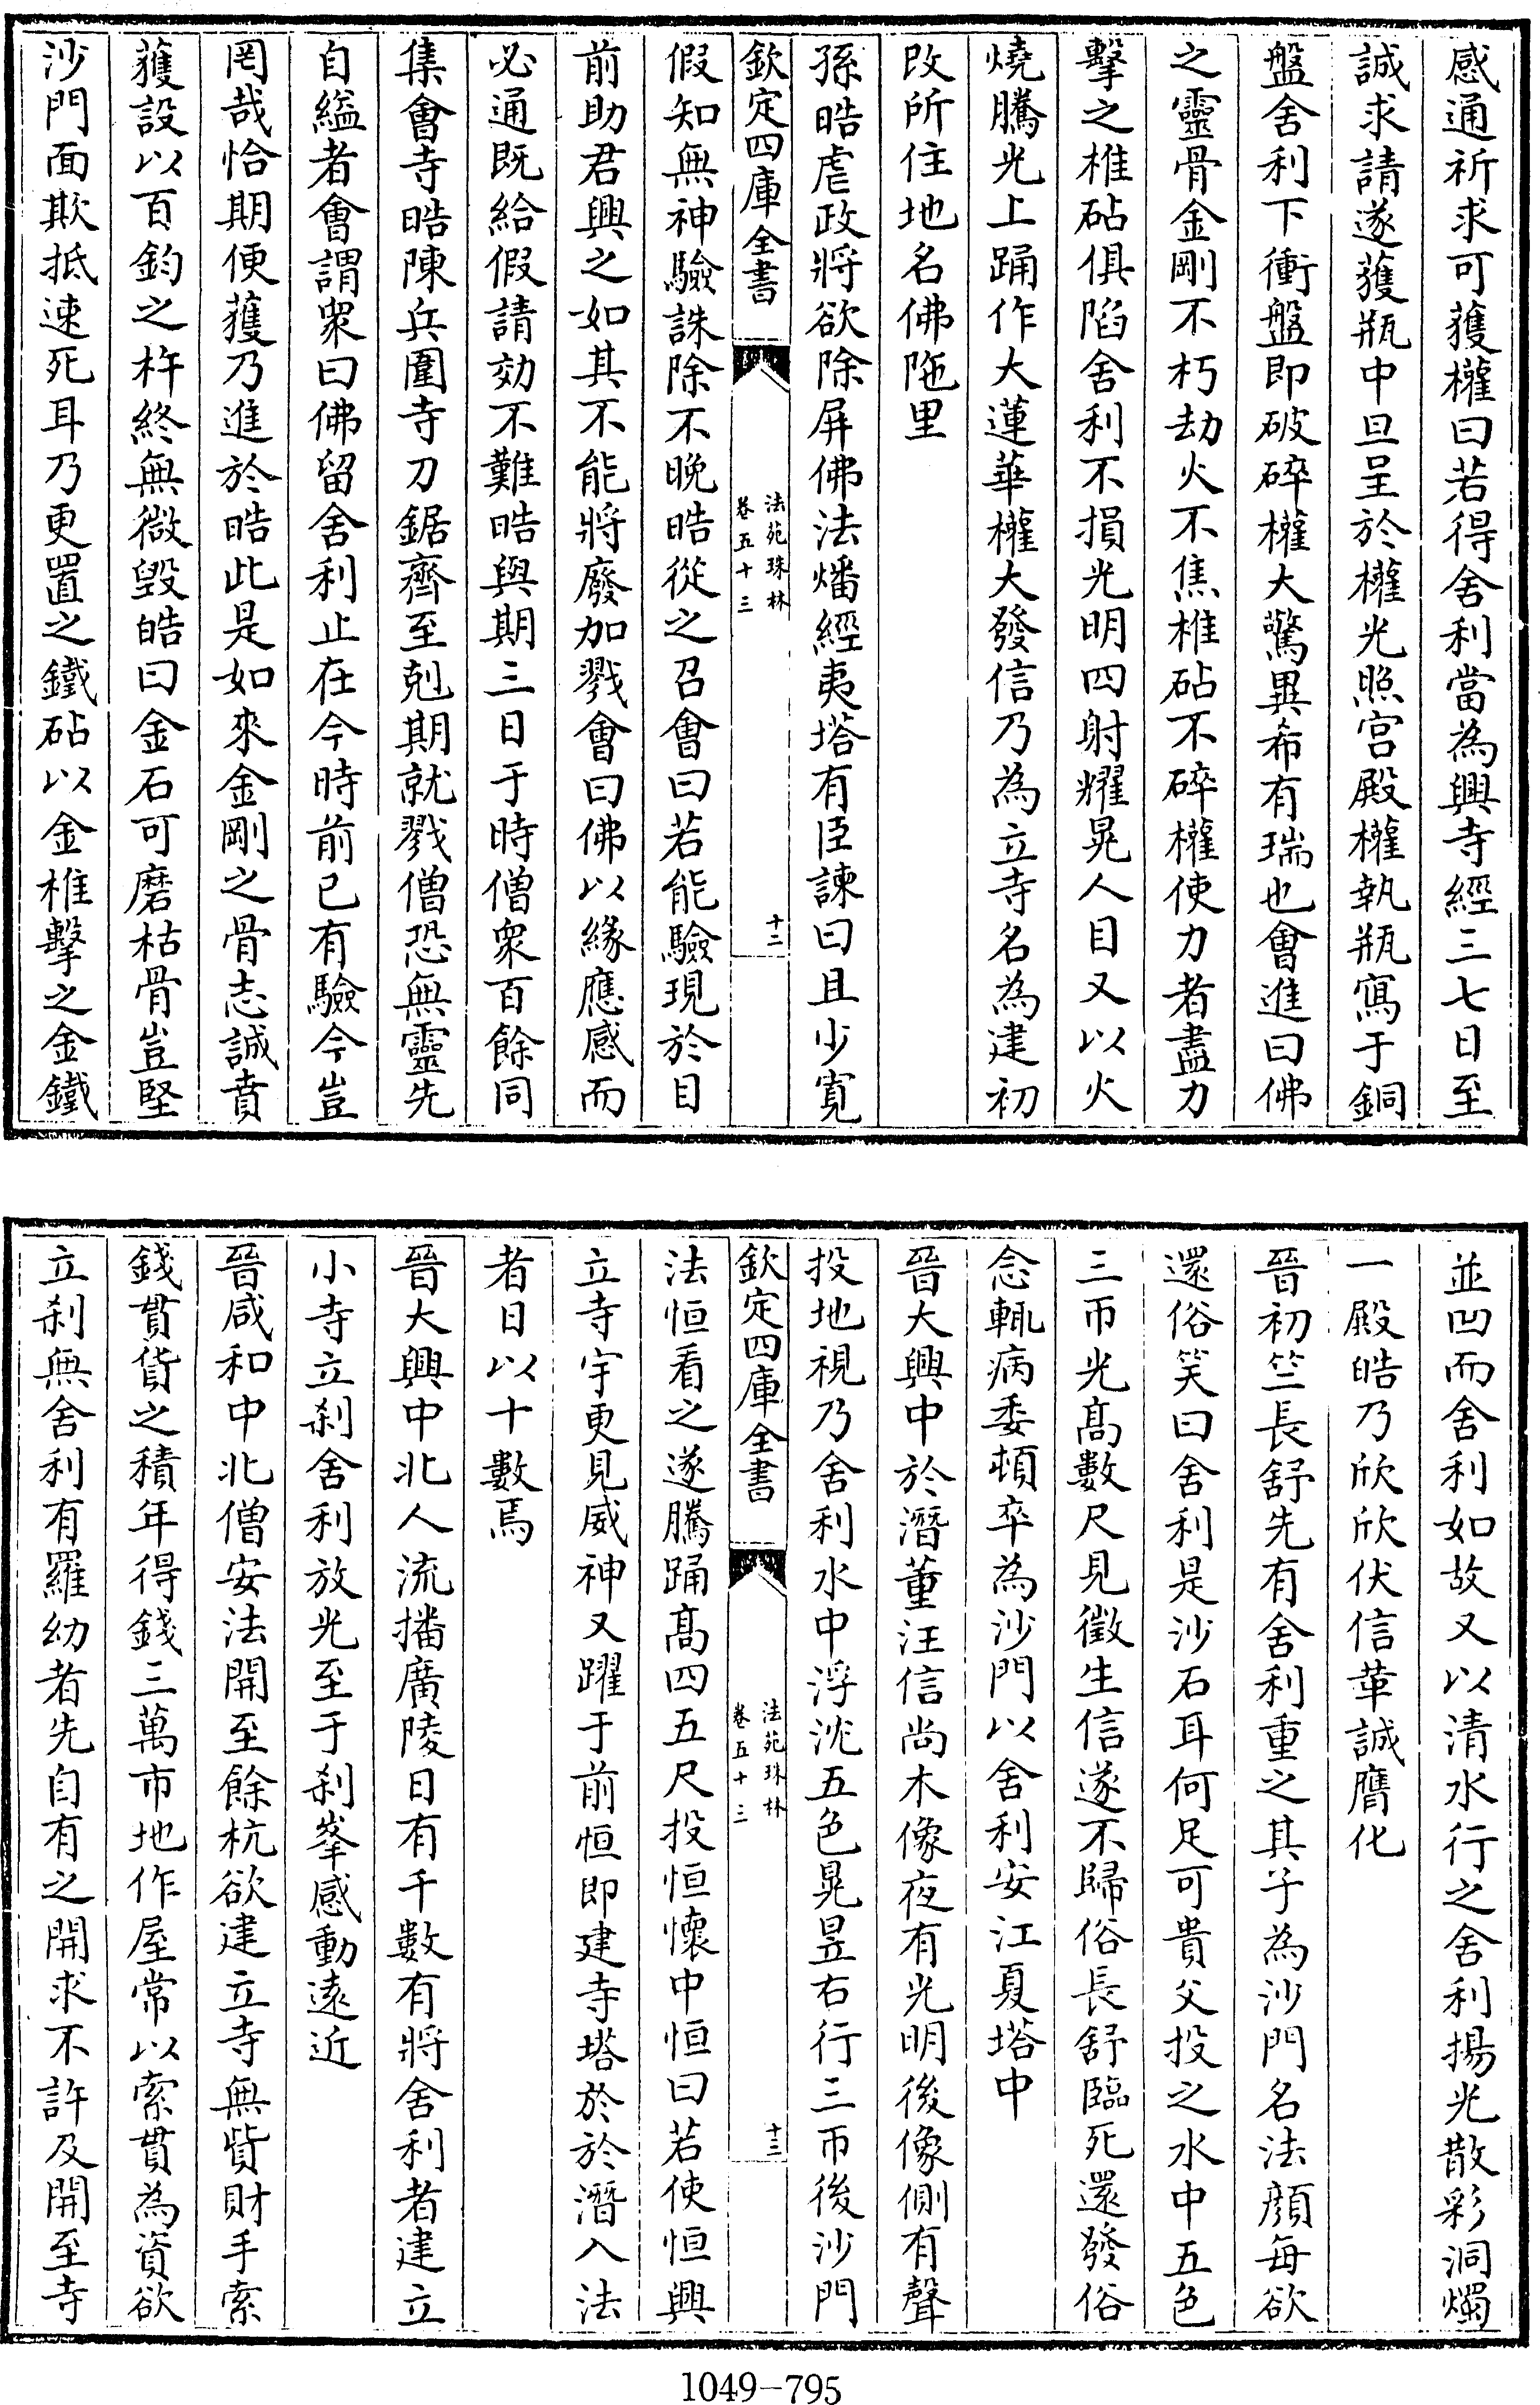 感通祈求可獲權曰若得舍利當為興寺經三七日至
誠求請遂獲瓶中旦呈於權光照宮殿權執瓶寫于銅
盤舍利下衝盤即破碎權大驚異希有瑞也會進曰佛
之靈骨金剛不朽劫火不焦椎砧不碎權使力者盡力
擊之椎砧俱陷舍利不損光明四射耀晃人目又以火
燒騰光上踊作大蓮華權大發信乃為立寺名為建初
改所住地名佛陁里
孫皓虐政將欲除屏佛法燔經夷塔有臣諫曰且少寬
欽定四庫全書
法苑珠林
卷五十三
十二
假知無神驗誅除不晚皓從之召會曰若能驗現於目
前助君興之如其不能將廢加戮會曰佛以緣應感而
必通既給假請効不難皓與期三日于時僧衆百餘同
集會寺皓陳兵圍寺刀鋸齊至剋期就戮僧恐無靈先
自縊者會謂衆曰佛留舍利止在今時前已有驗今豈
罔哉恰期便獲乃進於皓此是如來金剛之骨志誠賁
獲設以百鈞之杵終無微毀皓曰金石可磨枯骨豈堅
沙門面欺抵速死耳乃更置之鐵砧以金椎擊之金鐵
並凹而舍利如故又以清水行之舍利揚光散彩洞燭
一殿皓乃欣欣伏信革誠膺化
晉初竺長舒先有舍利重之其子為沙門名法顏每欲
還俗笑曰舍利是沙石耳何足可貴父投之水中五色
三帀光高數尺見徵生信遂不歸俗長舒臨死還發俗
念輒病委頓卒為沙門以舍利安江夏塔中
晉大興中於潛董汪信尚木像夜有光明後像側有聲
投地視乃舍利水中浮沈五色晃昱右行三帀後沙門
欽定四庫全書
法苑珠林
卷五十三
十三
法恒看之遂騰踊高四五尺投恒懷中恒曰若使恒興
立寺宇更見威神又躍于前恒即建寺塔於於潛入法
者日以十數焉
晉大興中北人流播廣陵日有千數有將舍利者建立
小寺立刹舍利放光至于刹峯感動遠近
晉咸和中北僧安法開至餘杭欲建立寺無貲財手索
錢貫貨之積年得錢三萬市地作屋常以索貫為資欲
立刹無舍利有羅幼者先自有之開求不許及開至寺
1049-795